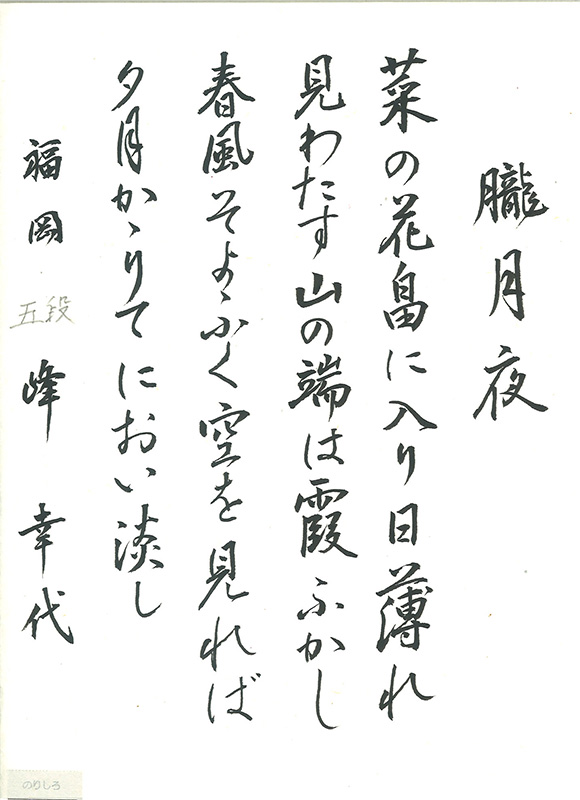 朧月夜
菜の花畠に入り日薄れ
見わたす山の端は霞ふかし
春風そよふく空を見れば
夕月かゝりてにおい淡し
福岡 五段 峰 幸代
のりしろ